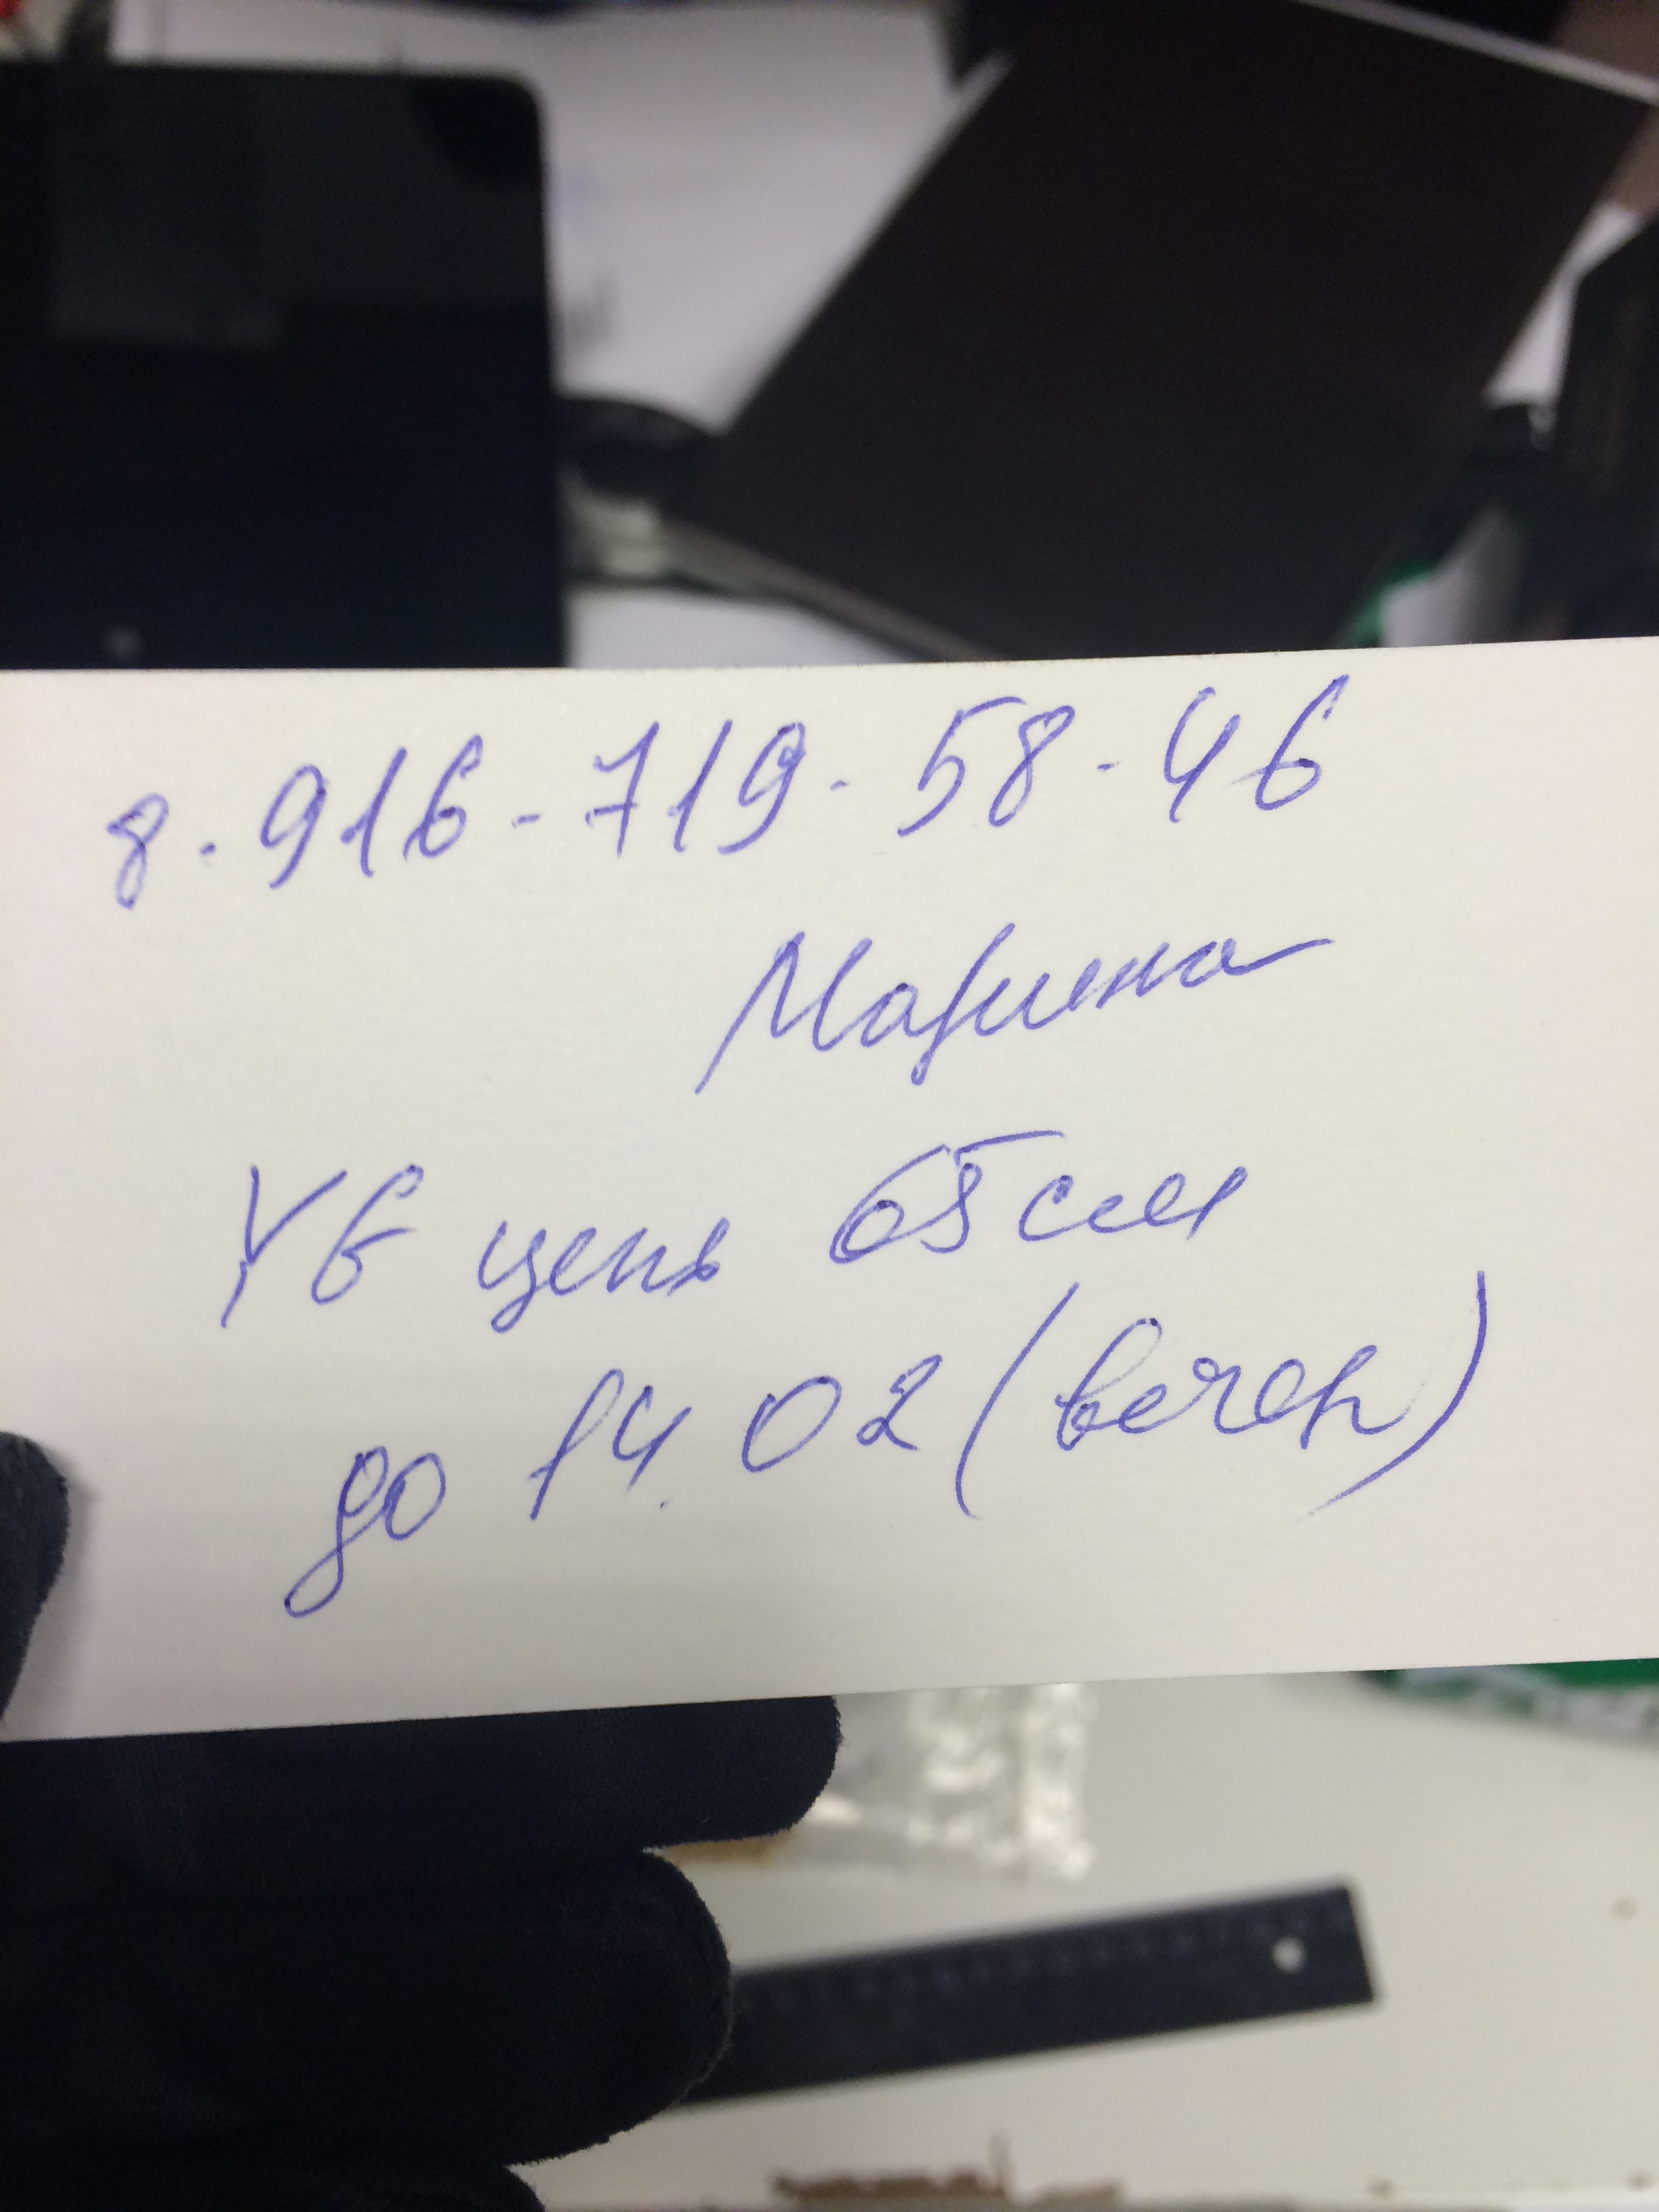 8-916-719-58-46
Марина
Ув цепь 65 см
до 14.02 (вечер)